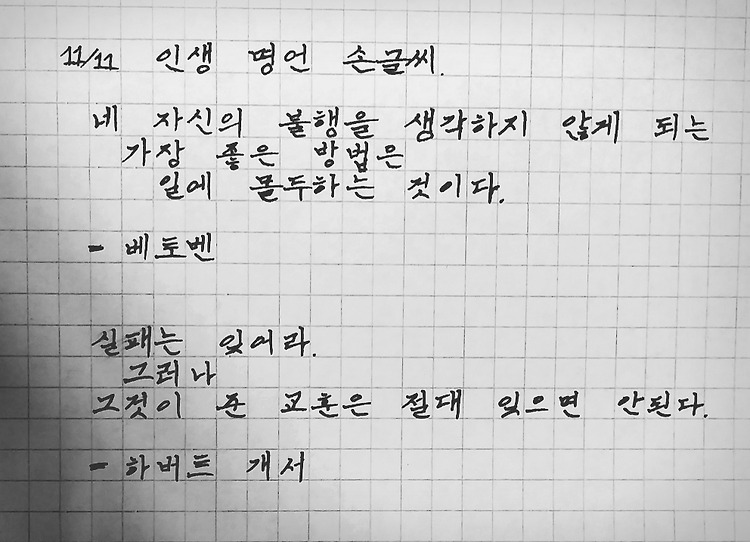 11/11 인생 명언 손글씨.
네 자신의 불행을 생각하지 않게 되는
가장 좋은 방법은
일에 몰두하는 것이다.
- 베토벤
실패는 잊어라.
그러나
그것이 준 교훈은 절대 잊으면 안된다.
- 하버트 개서